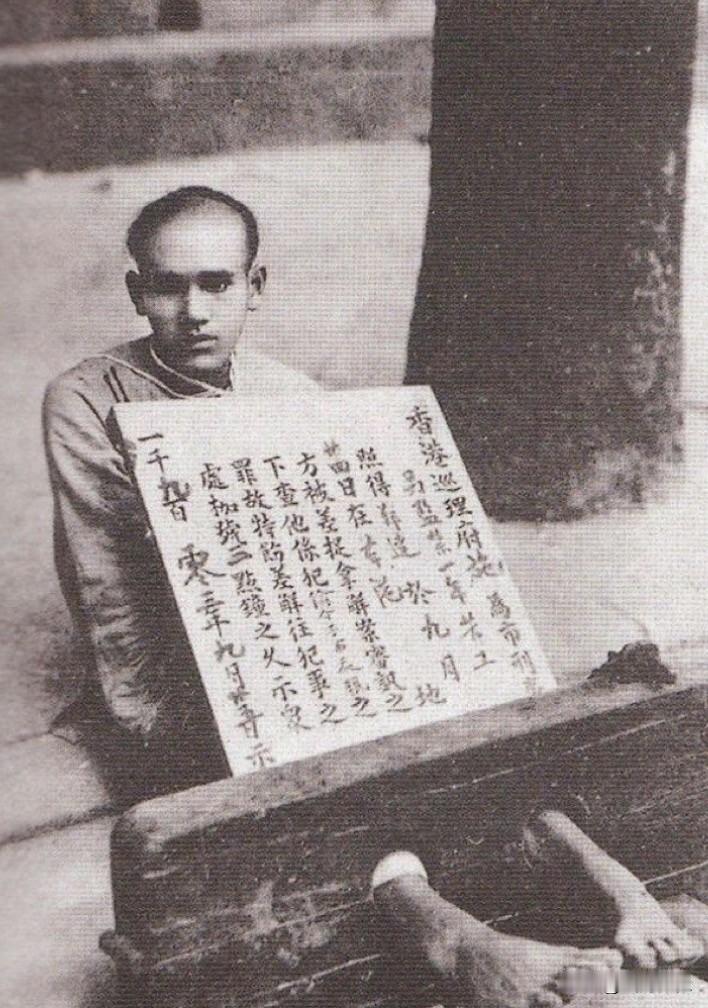 香港巡理府 為市刑
另監禁一年苦工
照得 於九月
廿四日在 地
方被差捉拿解案審訊之
下查他係犯 之
罪故特飭差解往犯事之
處枷號二點鐘之久示眾
一千九百零三年九月 日示